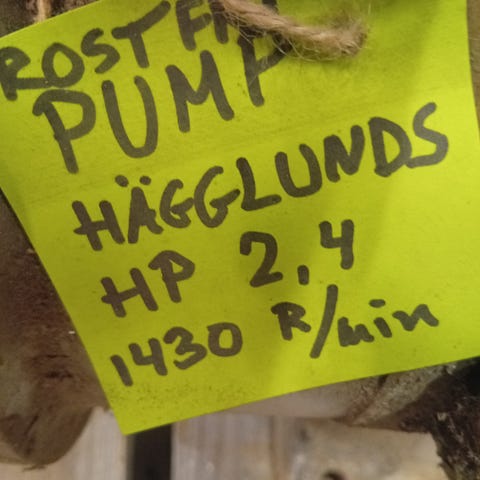 ROSTFRI
PUMP
HÄGGLUNDS
HP 2,4
1430 R/min